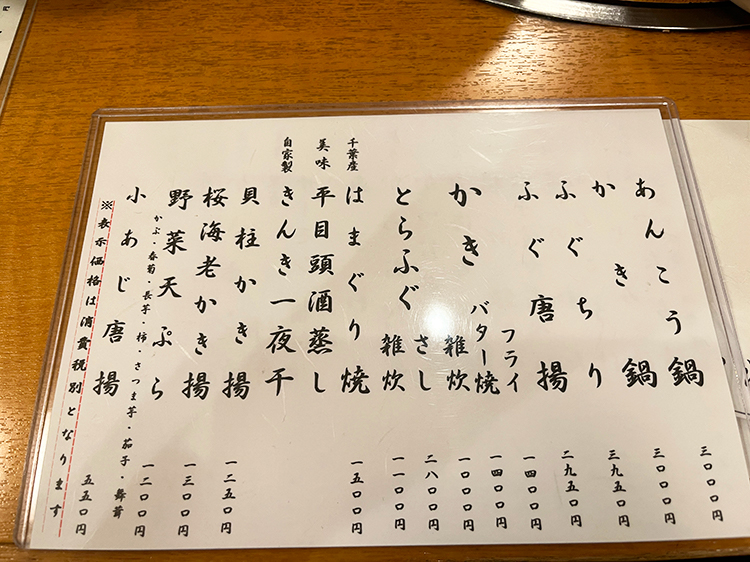 あんこう鍋 三〇〇〇円
かき鍋 三〇〇〇円
ふぐちり 三九五〇円
ふぐ唐揚 二九五〇円
かき
フライ 一四〇〇円
バター焼 一四〇〇円
雑炊 一〇〇〇円
とらふぐ
さし 二八〇〇円
雑炊 一一〇〇円
千葉産 はまぐり焼 一五〇〇円
美味 平目頭酒蒸し
自家製 きんき一夜干
貝柱かき揚 一二五〇円
桜海老かき揚 一三〇〇円
野菜天ぷら 一二〇〇円
かぶ・春菊・長芋・柿・さつま芋・茄子・舞茸
小あじ唐揚 五五〇円
※表示価格は消費税別となります